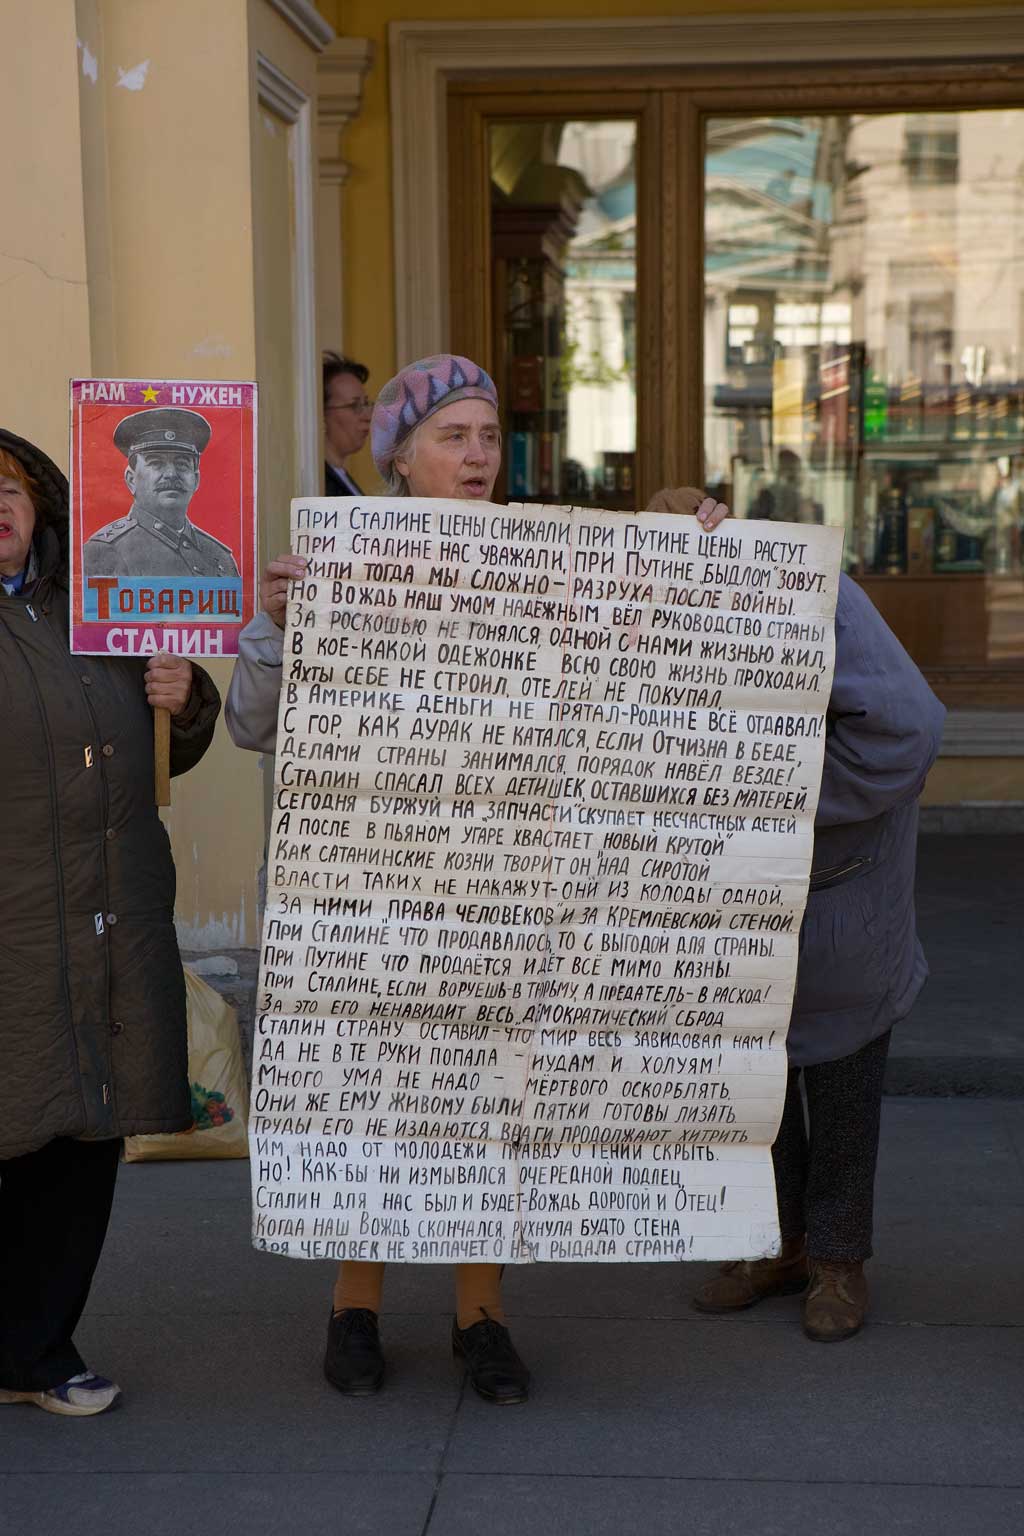 НАМ НУЖЕН
ТОВАРИЩ
СТАЛИН
ПРИ СТАЛИНЕ ЦЕНЫ СНИЖАЛИ, ПРИ ПУТИНЕ ЦЕНЫ РАСТУТ.
ПРИ СТАЛИНЕ НАС УВАЖАЛИ, ПРИ ПУТИНЕ „БЫДЛОМ" ЗОВУТ.
ЖИЛИ ТОГДА МЫ СЛОЖНО – РАЗРУХА ПОСЛЕ ВОЙНЫ.
НО ВОЖДЬ НАШ УМОМ НАДЁЖНЫМ ВЁЛ РУКОВОДСТВО СТРАНЫ
ЗА РОСКОШЬЮ НЕ ГОНЯЛСЯ, ОДНОЙ С НАМИ ЖИЗНЬЮ ЖИЛ,
В КОЕ-КАКОЙ ОДЕЖОНКЕ ВСЮ СВОЮ ЖИЗНЬ ПРОХОДИЛ.
ЯХТЫ СЕБЕ НЕ СТРОИЛ, ОТЕЛЕЙ НЕ ПОКУПАЛ,
В АМЕРИКЕ ДЕНЬГИ НЕ ПРЯТАЛ-РОДИНЕ ВСЁ ОТДАВАЛ!
С ГОР, КАК ДУРАК НЕ КАТАЛСЯ, ЕСЛИ ОТЧИЗНА В БЕДЕ,
ДЕЛАМИ СТРАНЫ ЗАНИМАЛСЯ, ПОРЯДОК НАВЁЛ ВЕЗДЕ!
СТАЛИН СПАСАЛ ВСЕХ ДЕТИШЕК, ОСТАВШИХСЯ БЕЗ МАТЕРЕЙ,
СЕГОДНЯ БУРЖУЙ НА „ЗАПЧАСТИ" СКУПАЕТ НЕСЧАСТНЫХ ДЕТЕЙ
А ПОСЛЕ В ПЬЯНОМ УГАРЕ ХВАСТАЕТ „НОВЫЙ КРУТОЙ"
КАК САТАНИНСКИЕ КОЗНИ ТВОРИТ ОН НАД СИРОТОЙ
ВЛАСТИ ТАКИХ НЕ НАКАЖУТ-ОНИ ИЗ КОЛОДЫ ОДНОЙ,
ЗА НИМИ „ПРАВА ЧЕЛОВЕКОВ" И ЗА КРЕМЛЁВСКОЙ СТЕНОЙ.
ПРИ СТАЛИНЕ ЧТО ПРОДАВАЛОСЬ, ТО С ВЫГОДОЙ ДЛЯ СТРАНЫ.
ПРИ ПУТИНЕ ЧТО ПРОДАЁТСЯ ИДЁТ ВСЁ МИМО КАЗНЫ.
ПРИ СТАЛИНЕ, ЕСЛИ ВОРУЕШЬ-В ТЮРЬМУ, А ПРЕДАТЕЛЬ-В РАСХОД!
ЗА ЭТО ЕГО НЕНАВИДИТ ВЕСЬ ДЕМОКРАТИЧЕСКИЙ СБРОД
СТАЛИН СТРАНУ ОСТАВИЛ-ЧТО МИР ВЕСЬ ЗАВИДОВАЛ НАМ!
ДА НЕ В ТЕ РУКИ ПОПАЛА – ИУДАМ И ХОЛУЯМ!
МНОГО УМА НЕ НАДО – МЁРТВОГО ОСКОРБЛЯТЬ.
ОНИ ЖЕ ЕМУ ЖИВОМУ БЫЛИ ПЯТКИ ГОТОВЫ ЛИЗАТЬ
ТРУДЫ ЕГО НЕ ИЗДАЮТСЯ, ВРАГИ ПРОДОЛЖАЮТ ХИТРИТЬ
ИМ НАДО ОТ МОЛОДЁЖИ ПРАВДУ О ГЕНИИ СКРЫТЬ.
НО! КАК-БЫ НИ ИЗМЫВАЛСЯ ОЧЕРЕДНОЙ ПОДЛЕЦ,
СТАЛИН ДЛЯ НАС БЫЛ И БУДЕТ-ВОЖДЬ ДОРОГОЙ И ОТЕЦ!
КОГДА НАШ ВОЖДЬ СКОНЧАЛСЯ, РУХНУЛА БУДТО СТЕНА
ЗРЯ ЧЕЛОВЕК НЕ ЗАПЛАЧЕТ. О НЁМ РЫДАЛА СТРАНА!